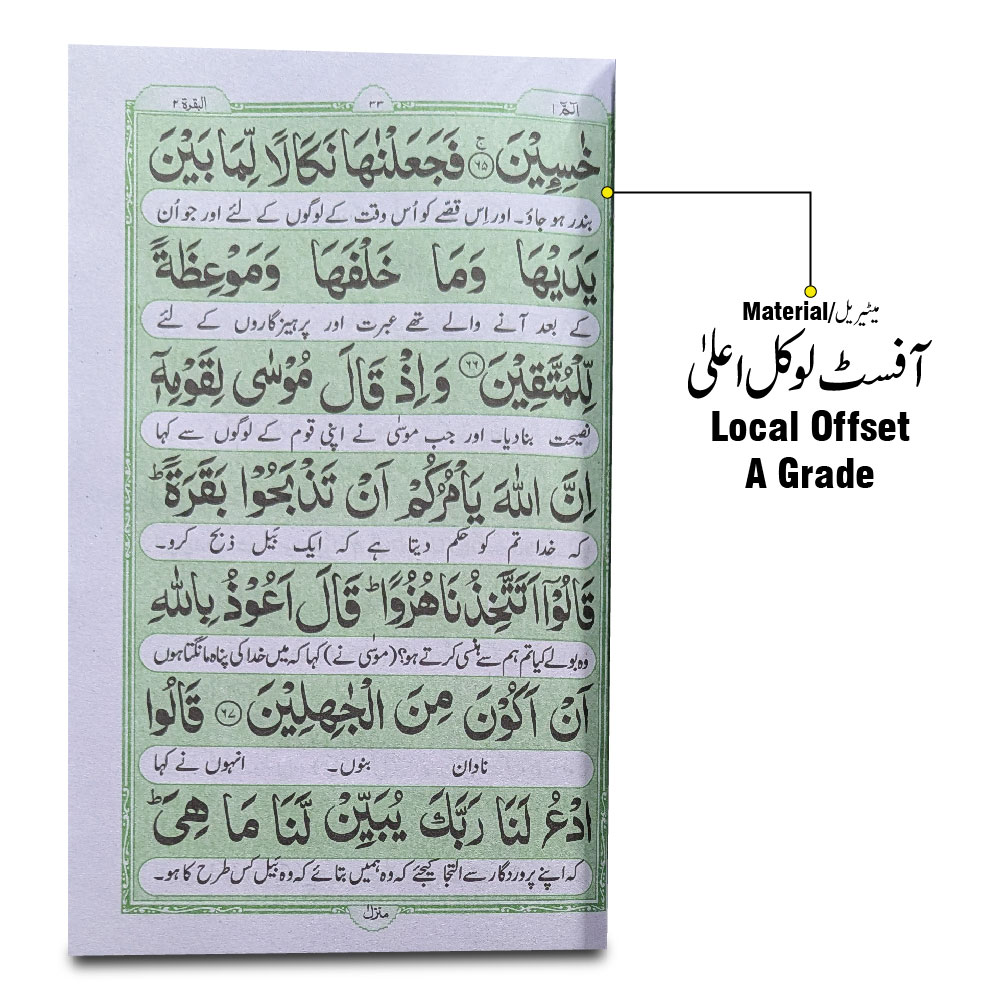 الٓمّٓ ۱
۳۳
البقرة ۲
خٰسِـِٕیْنَ ۚ﴿۶۵﴾ فَجَعَلْنٰهَا نَكَالًا لِّمَا بَیْنَ
بندر ہو جاؤ۔ اور اِس قصّے کو اُس وقت کے لوگوں کے لئے اور جو اُن
یَدَیْهَا وَمَا خَلْفَهَا وَمَوْعِظَةً
کے بعد آنے والے تھے عبرت اور پرہیزگاروں کے لئے
لِّلْمُتَّقِیْنَ ﴿۶۶﴾ وَاِذْ قَالَ مُوْسٰى لِقَوْمِهٖۤ
نصیحت بنا دیا۔ اور جب موسٰی نے اپنی قوم کے لوگوں سے کہا
اِنَّ اللّٰهَ یَاْمُرُكُمْ اَنْ تَذْبَحُوْا بَقَرَةً ؕ
کہ خدا تم کو حکم دیتا ہے کہ ایک بَیل ذبح کرو۔
قَالُوْۤا اَتَتَّخِذُنَا هُزُوًا ؕ قَالَ اَعُوْذُ بِاللّٰهِ
وہ بولے کیا تم ہم سے ہنسی کرتے ہو؟ (موسٰی نے) کہا کہ میں خدا کی پناہ مانگتا ہوں
اَنْ اَكُوْنَ مِنَ الْجٰهِلِیْنَ ﴿۶۷﴾ قَالُوا
نادان بنوں۔ انہوں نے کہا
ادْعُ لَنَا رَبَّكَ یُبَیِّنْ لَّنَا مَا هِیَ ؕ
کہ اپنے پروردگار سے التجا کیجئے کہ وہ ہمیں بتائے کہ وہ بَیل کس طرح کا ہو۔
منزل ۱
Material/میٹیریل
آفسٹ لوکل اعلیٰ
Local Offset
A Grade